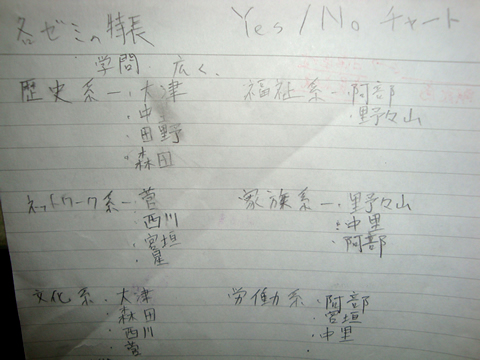 各ゼミの特長
Yes/No チャート
学問 広く、
歴史系ー・大津
・中里
・田野
・森田
福祉系ー・阿部
・野々山
ネットワーク系ー・菅
西川
・宮垣
・星
家族系ー・野々山
・中里
・阿部
文化系・大津
森田
・西川
・菅
労働系・阿部
・宮垣
・中里